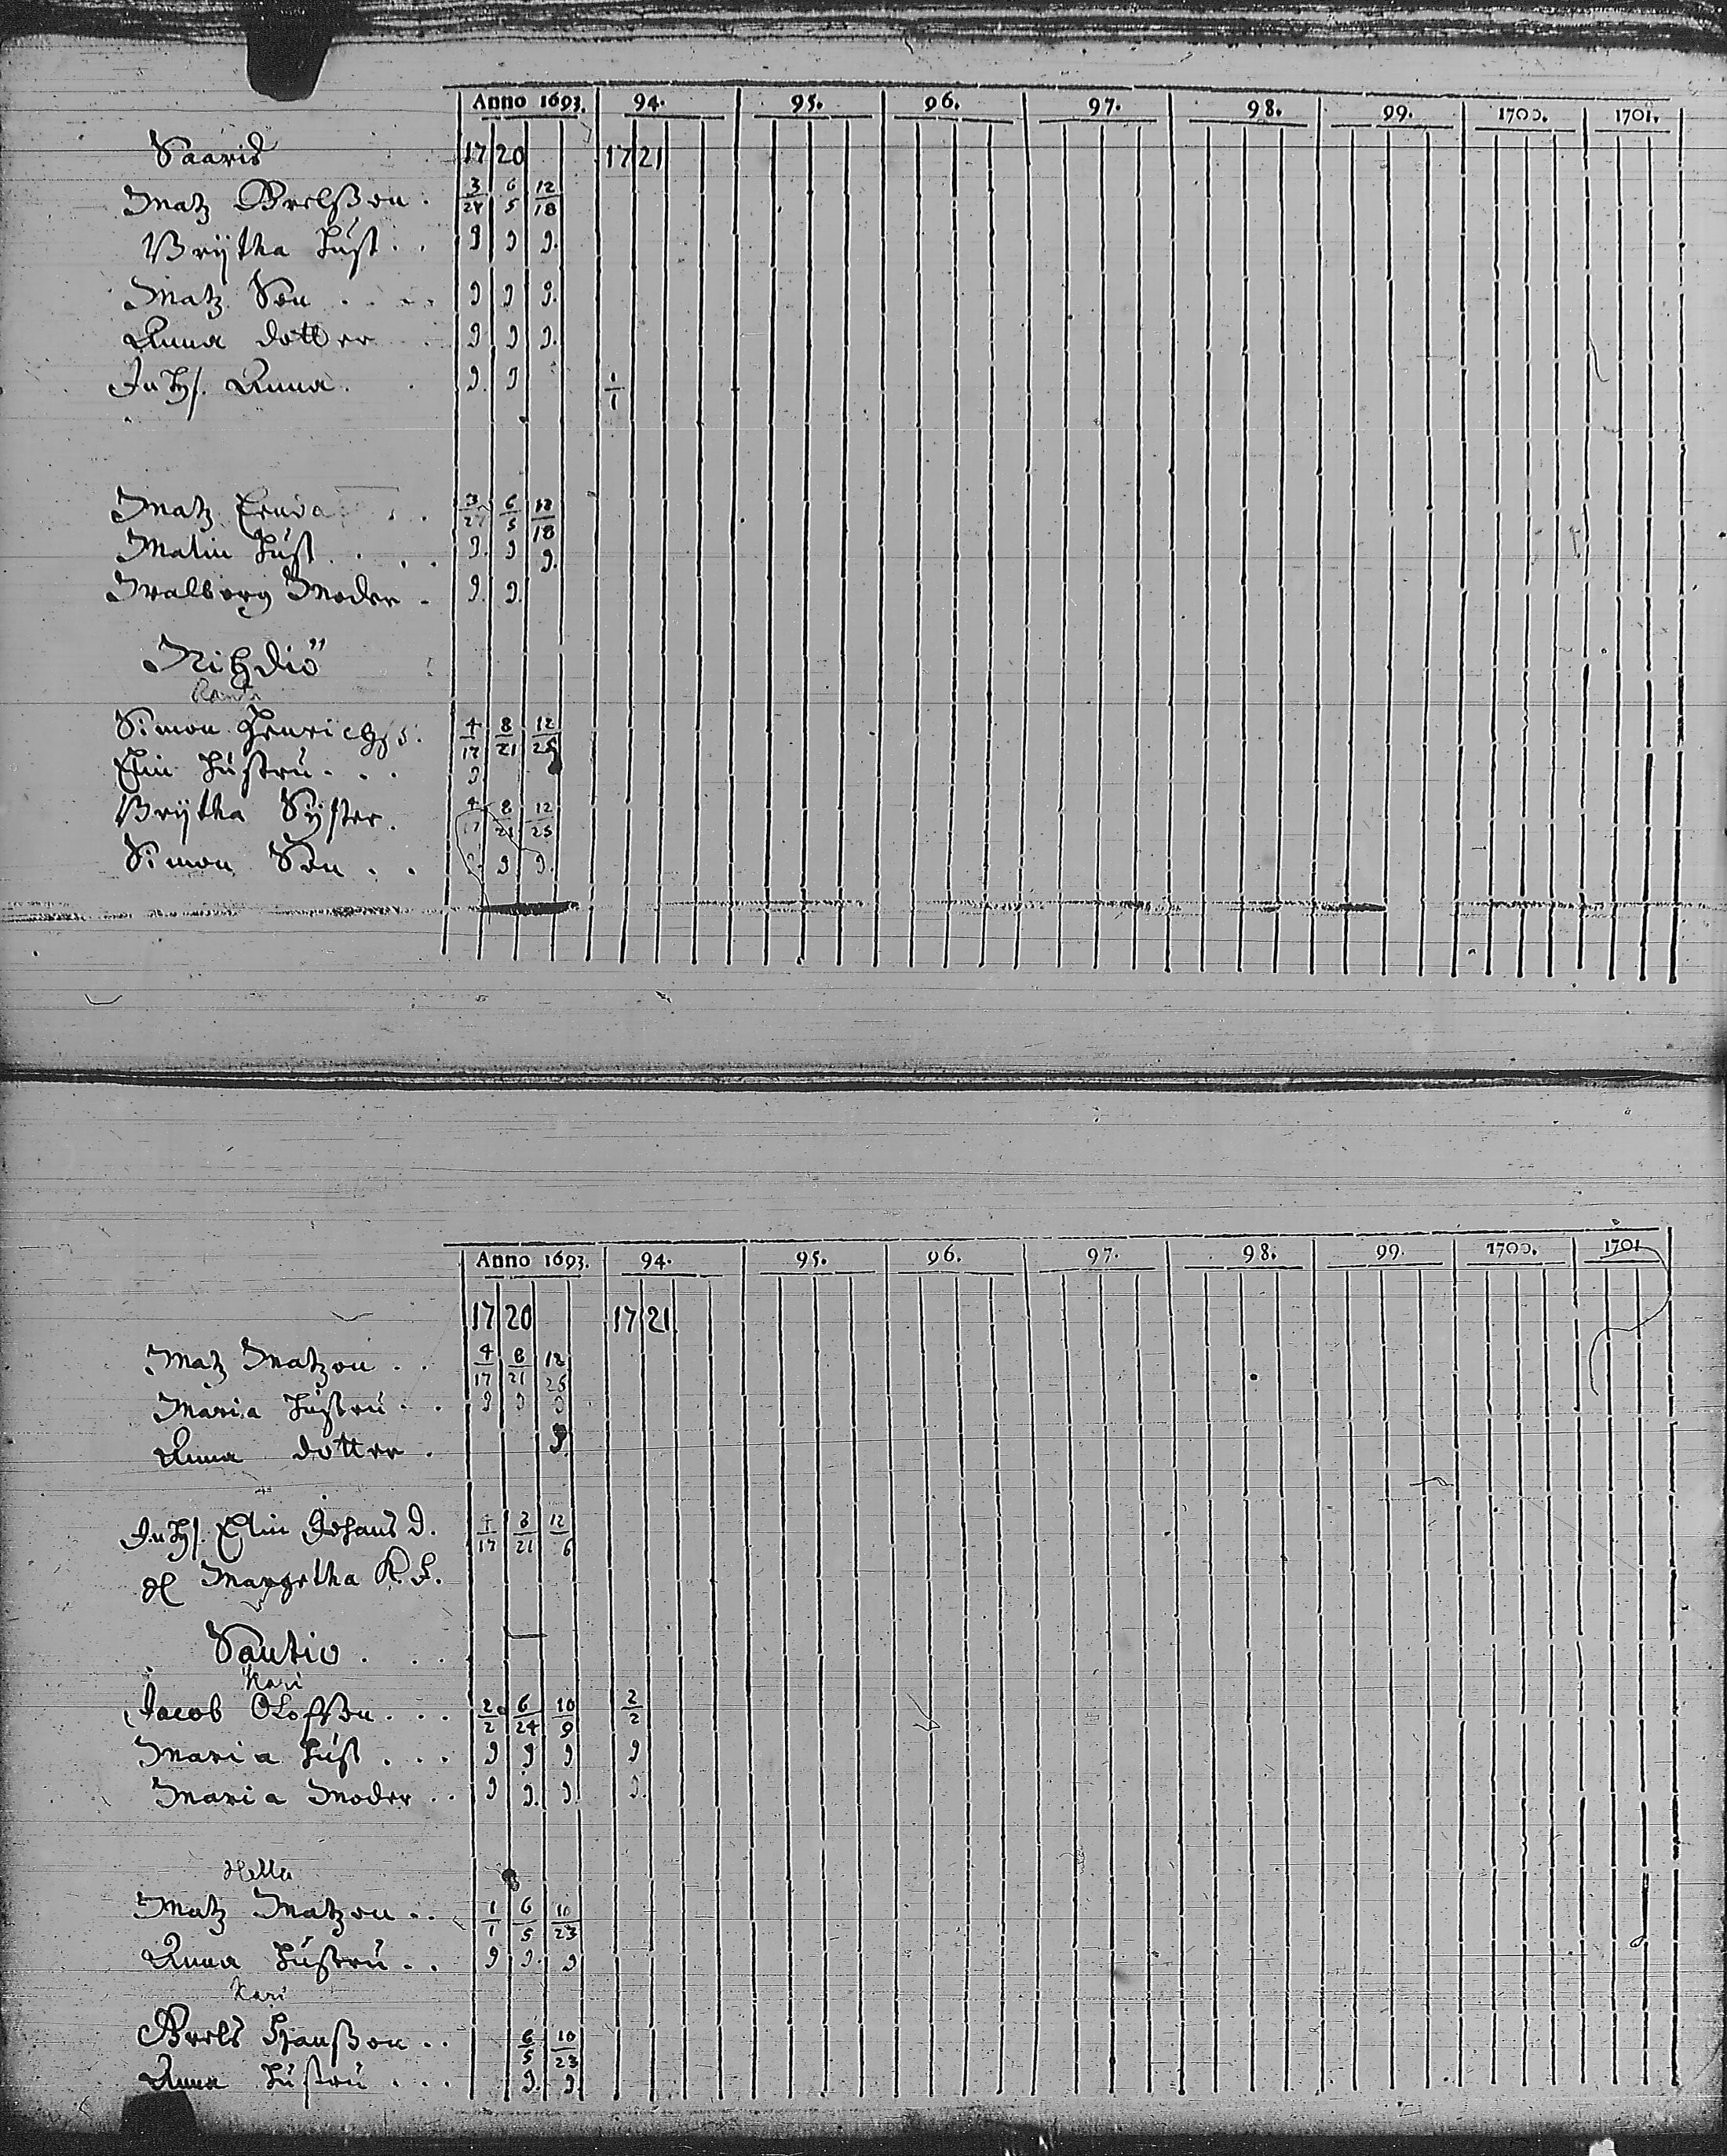 Anno 1693. 94. 95. 96. 97. 98. 99. 1700. 1701.
Saaris 17 20 17 21
Matz Brelsson. 3/24 6/5 12/18
Brijtha Hust. . 9 9 9.
Matz Son . . . . 9 9 9.
Anna dotter 9 9 9.
Inhys. Anna. 9. 9 1/1
Matz . . 3/27 6/5 12/18
Malin Hust . . . 9. 9 9.
Walborg Moder . 9. 9.
Simon Henrichss. 4/17 8/21 12/25
Elin Hustru. . . 9
Brijtha Syster. 4/17 8/21 12/25
Simon Son . . 9 9 9.
Anno 1693. 94. 95. 96. 97. 98. 99. 1700. 1701
17 20 17 21
Matz Matzon . . 4/17 8/21 12/25
Maria Hustru . . 9 9 9
Anna dotter . 9.
Inhys. Elin Johans D. 4/17 8/21 12/6
Margetha K. H.
Santio . . .
Kari
Jacob Olofsson. . . 2/2 6/24 10/9 2/2
Maria Hust . . . 9 9 9 9
Maria Moder . . 9 9. 9. 9.
Hella
Matz Matzon . . 1/1 6/5 10/23
Anna Hustru . . 9 9. 9
Kari
Brels Hansson . . 6/5 10/23
Anna Hustru . . . 9. 9.